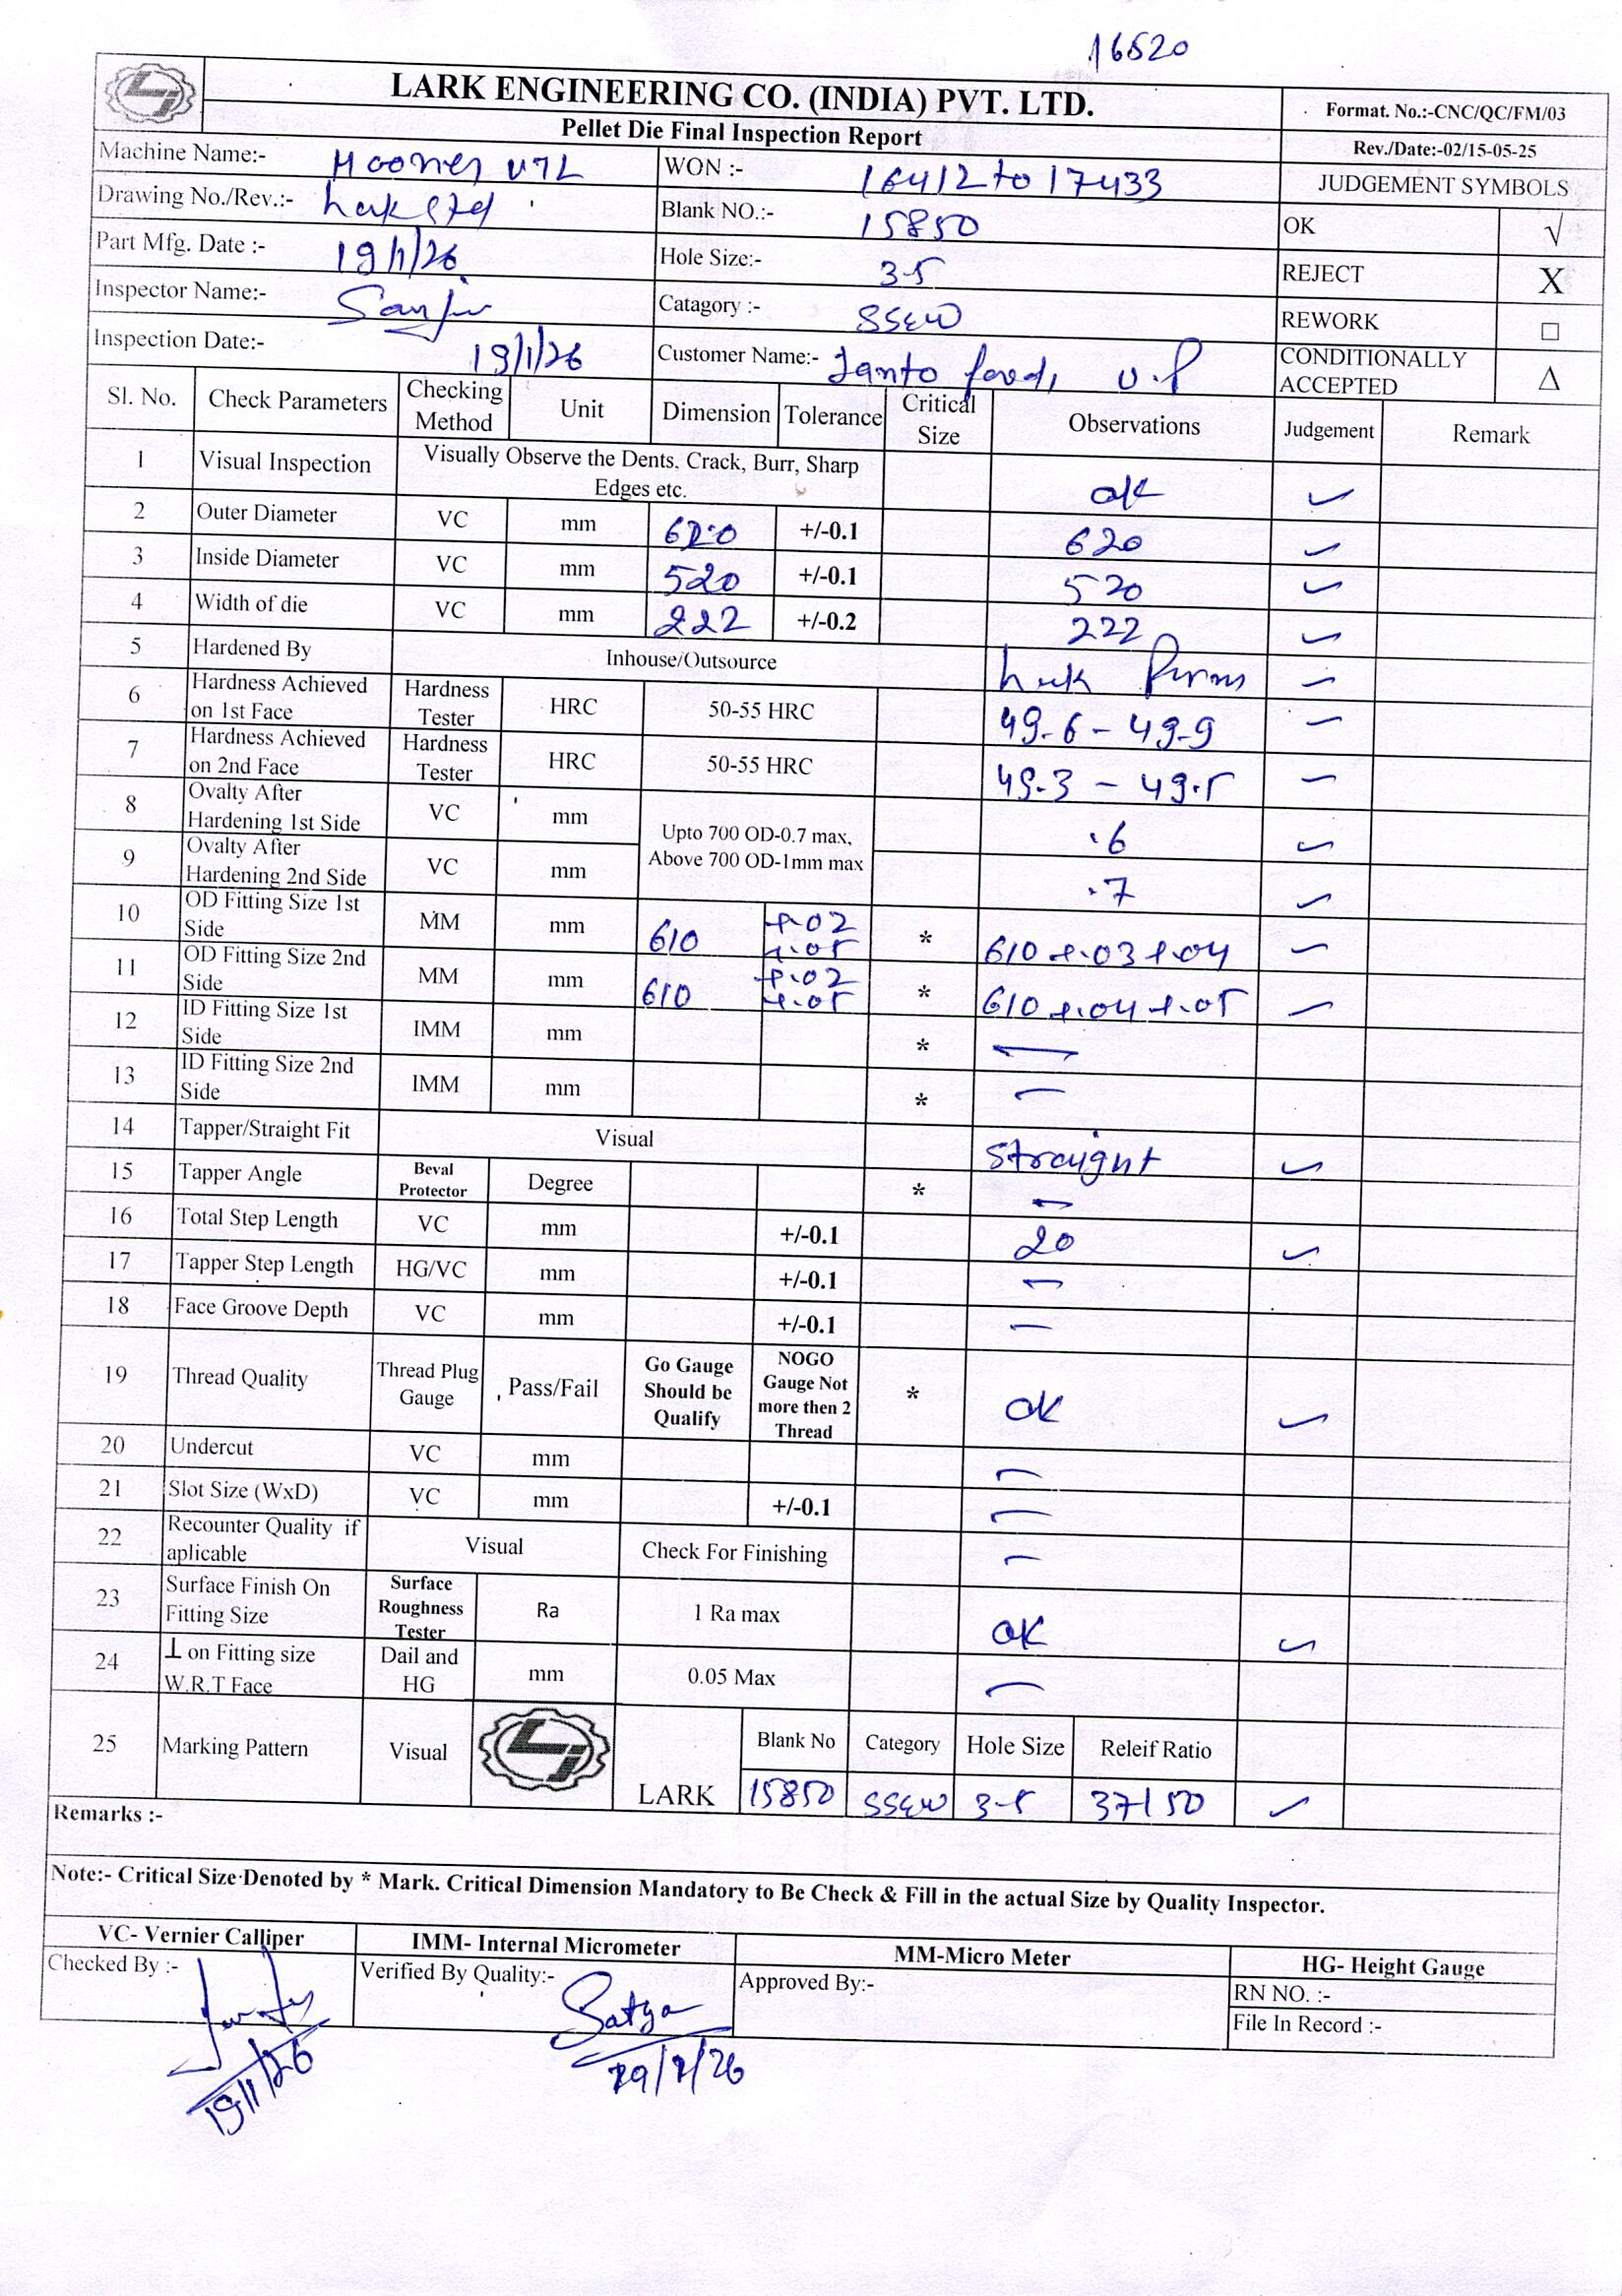 16520
LARK ENGINEERING CO. (INDIA) PVT. LTD.
Pellet Die Final Inspection Report
Format. No.:-CNC/QC/FM/03
Rev./Date:-02/15-05-25
JUDGEMENT SYMBOLS
OK √
REJECT X
REWORK □
CONDITIONALLY ACCEPTED Δ
Machine Name:- VTL
WON :- 16412 to 17433
Drawing No./Rev.:- Lark Std
Blank NO.:- 15850
Part Mfg. Date :- 19/1/26
Hole Size:- 3.5
Inspector Name:-
Catagory :- SSEW
Inspection Date:- 19/1/26
Customer Name:- U.P
Sl. No. Check Parameters Checking Method Unit Dimension Tolerance Critical Size Observations Judgement Remark
1 Visual Inspection Visually Observe the Dents, Crack, Burr, Sharp Edges etc. ok ✓
2 Outer Diameter VC mm 620 +/-0.1 620 ✓
3 Inside Diameter VC mm 520 +/-0.1 520 ✓
4 Width of die VC mm 222 +/-0.2 222 ✓
5 Hardened By Inhouse/Outsource Lark ✓
6 Hardness Achieved on 1st Face Hardness Tester HRC 50-55 HRC 49.6 - 49.9 ✓
7 Hardness Achieved on 2nd Face Hardness Tester HRC 50-55 HRC 49.3 - 49.5 ✓
8 Ovalty After Hardening 1st Side VC mm Upto 700 OD-0.7 max, Above 700 OD-1mm max .6 ✓
9 Ovalty After Hardening 2nd Side VC mm .7 ✓
10 OD Fitting Size 1st Side MM mm 610 +.02 +.05 * 610 +.03 +.04 ✓
11 OD Fitting Size 2nd Side MM mm 610 +.02 +.05 * 610 +.04 +.05 ✓
12 ID Fitting Size 1st Side IMM mm * —
13 ID Fitting Size 2nd Side IMM mm * —
14 Tapper/Straight Fit Visual Straight ✓
15 Tapper Angle Beval Protector Degree * —
16 Total Step Length VC mm +/-0.1 20 ✓
17 Tapper Step Length HG/VC mm +/-0.1 —
18 Face Groove Depth VC mm +/-0.1 —
19 Thread Quality Thread Plug Gauge Pass/Fail Go Gauge Should be Qualify NOGO Gauge Not more then 2 Thread * OK ✓
20 Undercut VC mm —
21 Slot Size (WxD) VC mm +/-0.1 —
22 Recounter Quality if aplicable Visual Check For Finishing —
23 Surface Finish On Fitting Size Surface Roughness Tester Ra 1 Ra max OK ✓
24 ⊥ on Fitting size W.R.T Face Dail and HG mm 0.05 Max —
25 Marking Pattern Visual LARK Blank No Category Hole Size Releif Ratio
15850 SSEW 3.5 37/50 ✓
Remarks :-
Note:- Critical Size Denoted by * Mark. Critical Dimension Mandatory to Be Check & Fill in the actual Size by Quality Inspector.
VC- Vernier Calliper IMM- Internal Micrometer MM-Micro Meter HG- Height Gauge
Checked By :- Verified By Quality:- Satya Approved By:- RN NO. :-
File In Record :-
19/1/26